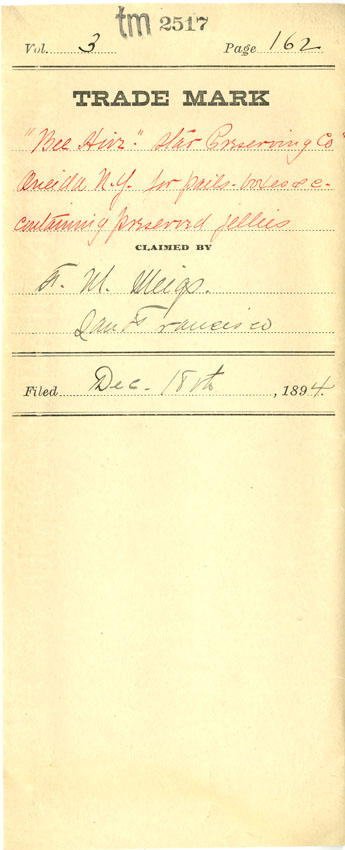 tm 2517
Vol. 3 Page 162
TRADE MARK
"Bee Hive" Star Preserving Co"
Oneida N.Y. for pails-boxes &c-
containing preserved jellies
CLAIMED BY
F. M. Meigs.
San Francisco
Filed Dec. 18th, 1894.